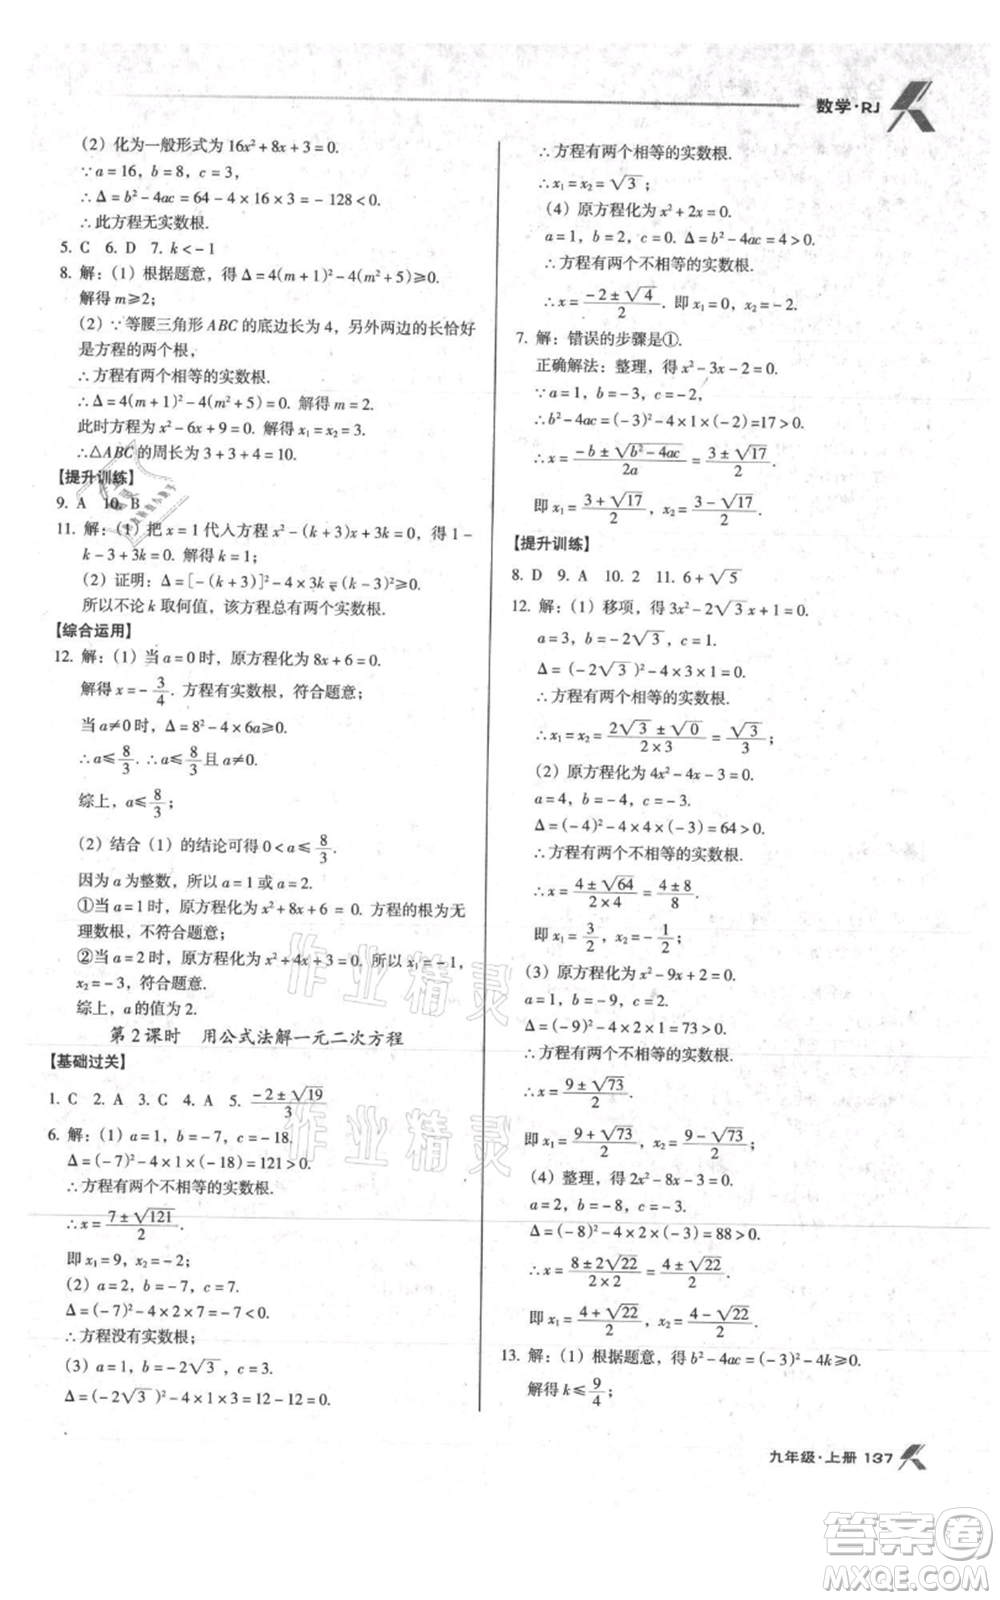 数学·RJ
(2) 化为一般形式为 16x²+8x+3=0.
∵a=16, b=8, c=3,
∴Δ=b²-4ac=64-4×16×3=-128<0.
∴此方程无实数根.
5. C 6. D 7. k<-1
8. 解:(1) 根据题意,得 Δ=4(m+1)²-4(m²+5)≥0.
解得 m≥2;
(2) ∵等腰三角形 ABC 的底边长为 4,另外两边的长恰好
是方程的两个根,
∴方程有两个相等的实数根.
∴Δ=4(m+1)²-4(m²+5)=0. 解得 m=2.
此时方程为 x²-6x+9=0. 解得 x₁=x₂=3.
∴△ABC 的周长为 3+3+4=10.
【提升训练】
9. A 10. B
11. 解:(1) 把 x=1 代入方程 x²-(k+3)x+3k=0,得 1-
k-3+3k=0. 解得 k=1;
(2) 证明:Δ=[-(k+3)]²-4×1×3k=(k-3)²≥0.
所以不论 k 取何值,该方程总有两个实数根.
【综合运用】
12. 解:(1) 当 a=0 时,原方程化为 8x+6=0.
解得 x=-3/4. 方程有实数根,符合题意;
当 a≠0 时,Δ=8²-4×6a≥0.
∴a≤8/3. ∴a≤8/3 且 a≠0.
综上,a≤8/3;
(2) 结合 (1) 的结论可得 0<a≤8/3.
因为 a 为整数,所以 a=1 或 a=2.
①当 a=1 时,原方程化为 x²+8x+6=0. 方程的根为无
理数根,不符合题意;
②当 a=2 时,原方程化为 x²+4x+3=0. 所以 x₁=-1,
x₂=-3,符合题意.
综上,a 的值为 2.
第 2 课时 用公式法解一元二次方程
【基础过关】
1. C 2. A 3. C 4. A 5. (-2±√19)/3
6. 解:(1) a=1, b=-7, c=-18.
Δ=(-7)²-4×1×(-18)=121>0.
∴方程有两个不相等的实数根.
∴x=(7±√121)/2.
即 x₁=9, x₂=-2;
(2) a=2, b=-7, c=7.
Δ=(-7)²-4×2×7=-7<0.
∴方程没有实数根;
(3) a=1, b=-2√3, c=3.
Δ=(-2√3)²-4×1×3=12-12=0.
∴方程有两个相等的实数根.
∴x₁=x₂=√3;
(4) 原方程化为 x²+2x=0.
a=1, b=2, c=0. Δ=b²-4ac=4>0.
∴方程有两个不相等的实数根.
∴x=(-2±√4)/2. 即 x₁=0, x₂=-2.
7. 解:错误的步骤是①.
正确解法:整理,得 x²-3x-2=0.
∵a=1, b=-3, c=-2,
∴b²-4ac=(-3)²-4×1×(-2)=17>0.
∴x=(-b±√(b²-4ac))/2a=(3±√17)/2.
即 x₁=(3+√17)/2, x₂=(3-√17)/2.
【提升训练】
8. D 9. A 10. 2 11. 6+√5
12. 解:(1) 移项,得 3x²-2√3x+1=0.
a=3, b=-2√3, c=1.
Δ=(-2√3)²-4×3×1=0.
∴方程有两个相等的实数根.
∴x₁=x₂=(2√3±√0)/(2×3)=√3/3;
(2) 原方程化为 4x²-4x-3=0.
a=4, b=-4, c=-3.
Δ=(-4)²-4×4×(-3)=64>0.
∴方程有两个不相等的实数根.
∴x=(4±√64)/(2×4)=(4±8)/8.
即 x₁=3/2, x₂=-1/2;
(3) 原方程化为 x²-9x+2=0.
a=1, b=-9, c=2.
Δ=(-9)²-4×1×2=73>0.
∴方程有两个不相等的实数根.
∴x=(9±√73)/2.
即 x₁=(9+√73)/2, x₂=(9-√73)/2;
(4) 整理,得 2x²-8x-3=0.
a=2, b=-8, c=-3.
Δ=(-8)²-4×2×(-3)=88>0.
∴x=(8±2√22)/(2×2)=(4±√22)/2.
即 x₁=(4+√22)/2, x₂=(4-√22)/2.
13. 解:(1) 根据题意,得 b²-4ac=(-3)²-4k≥0.
解得 k≤9/4;
九年级·上册 137
作业精灵
作业精灵
答案卷
MXQE.COM